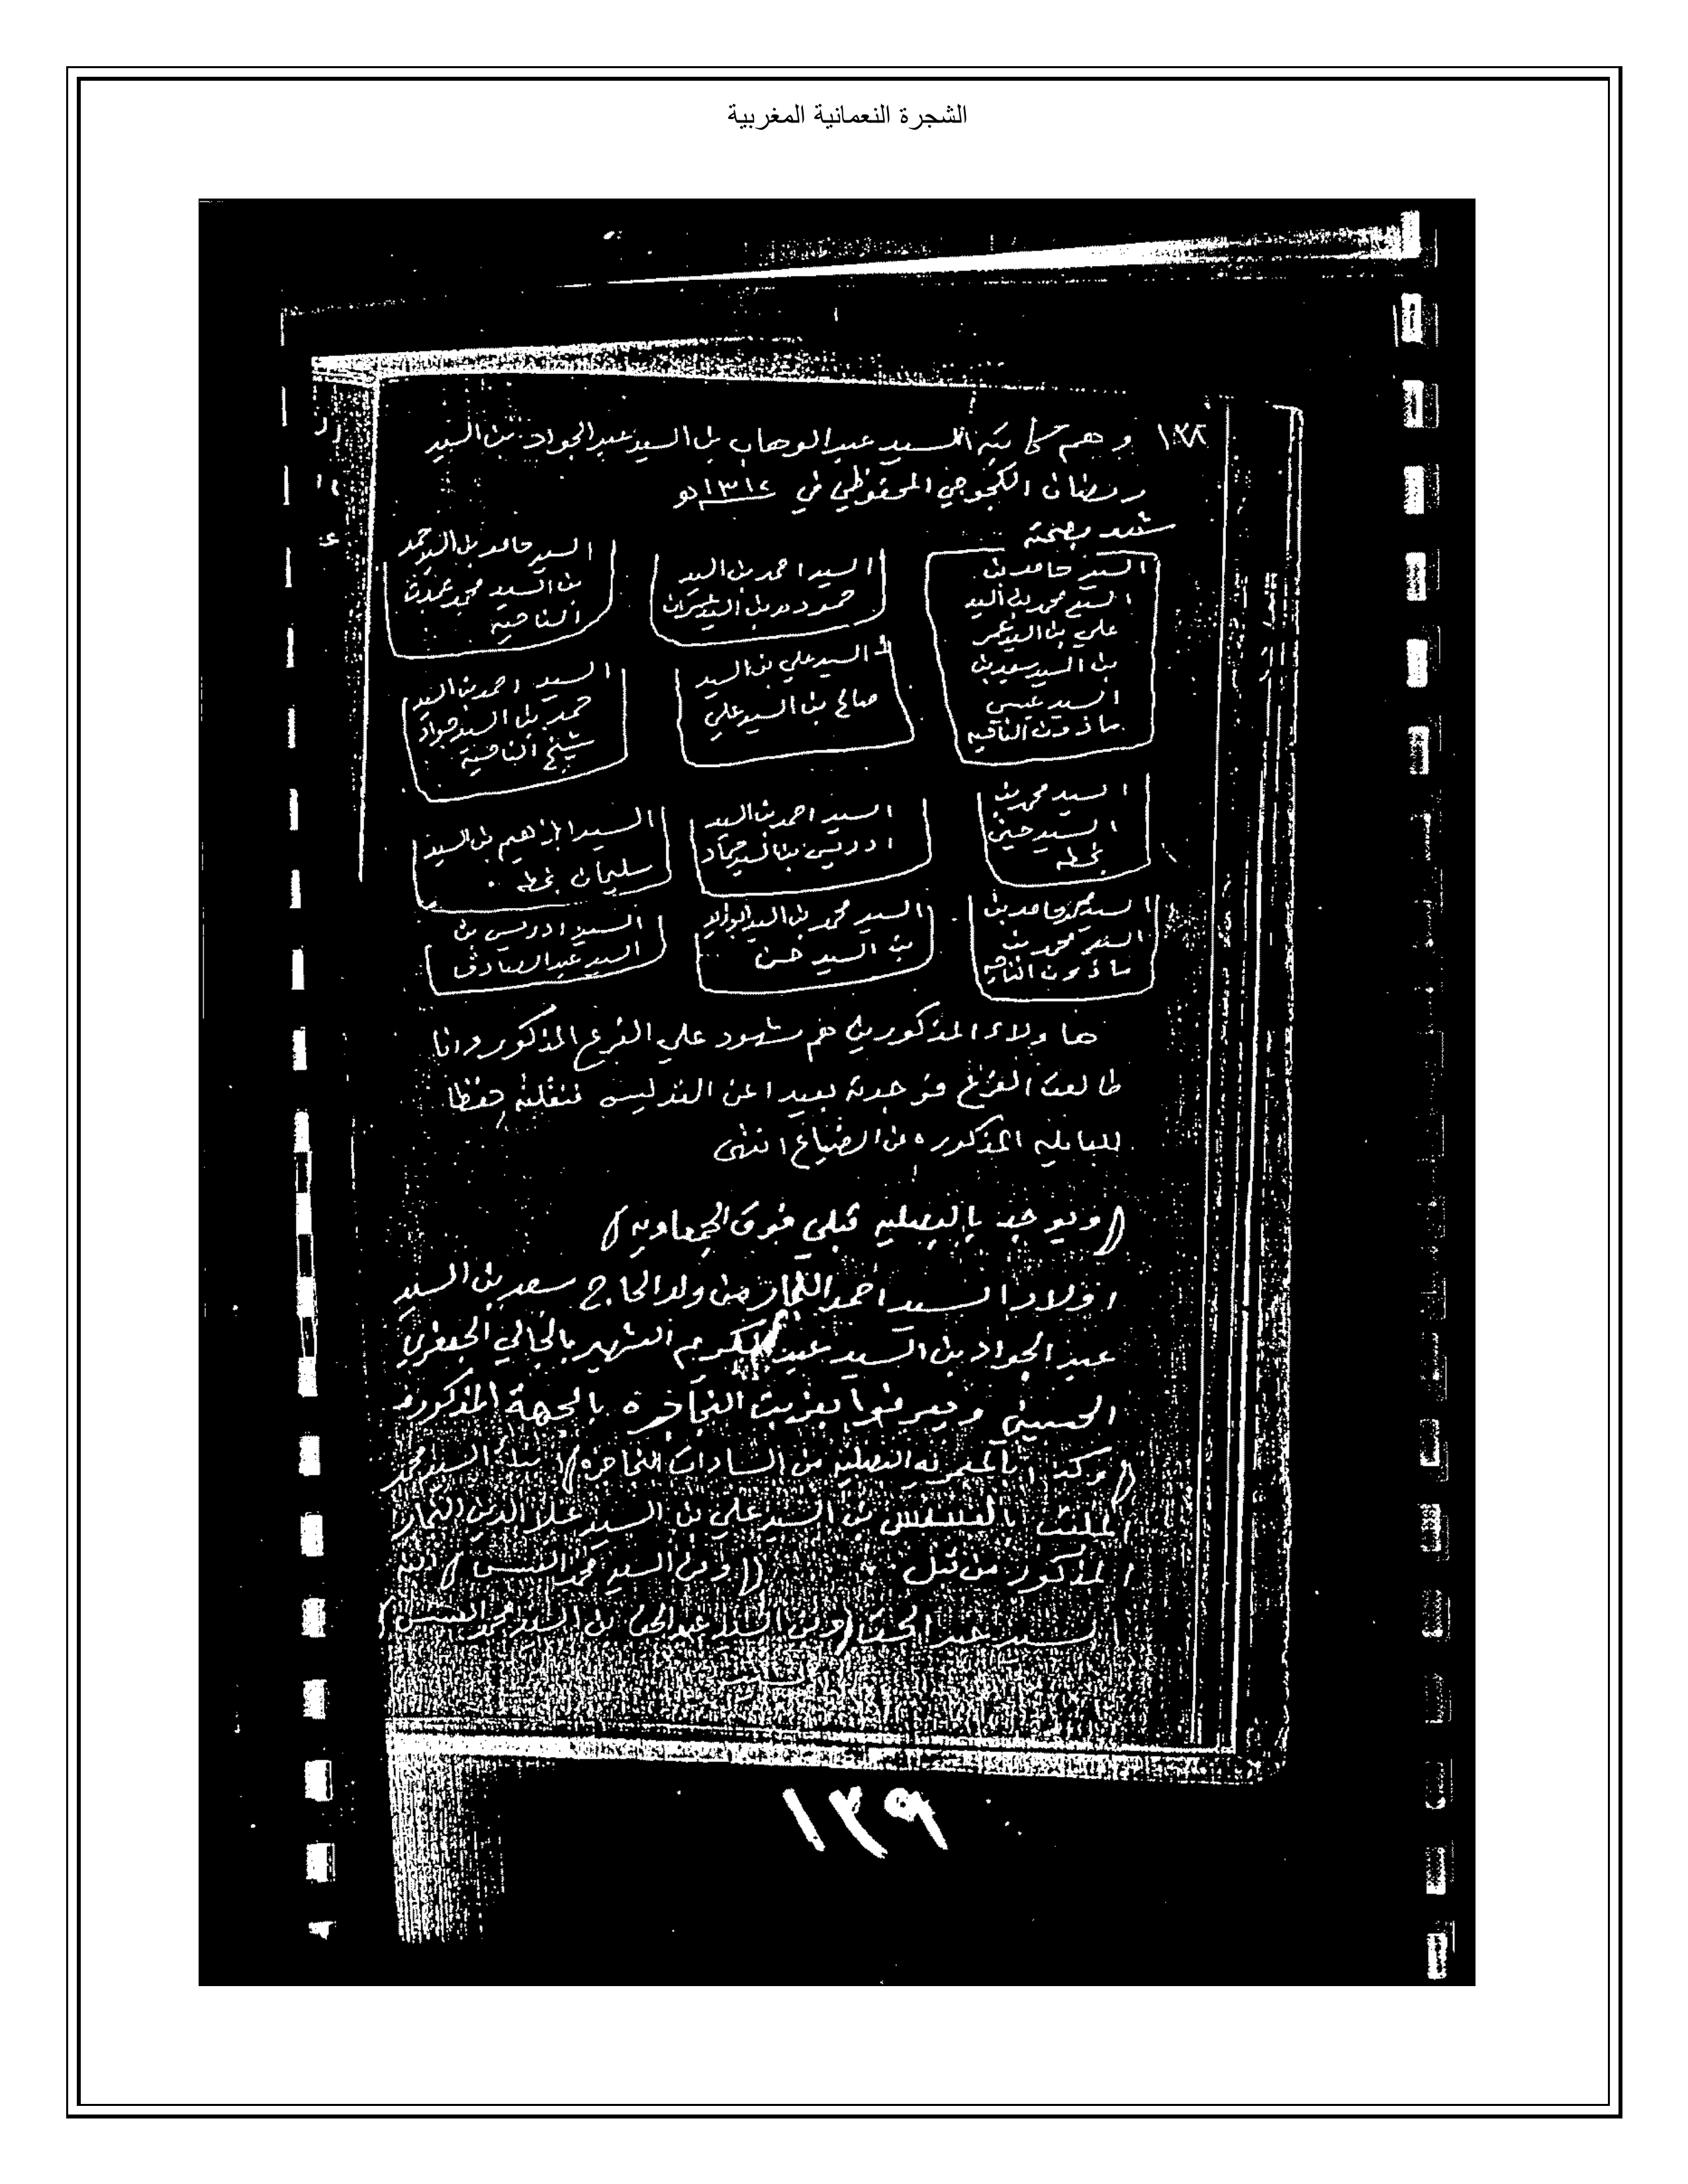 الشجرة النعمانية المغربية
١٣٨ وهم كاتبه السيد عبد الوهاب بن السيد عبد الجواد بن السيد
رمضان الكجوجي المحفوظي في ١٣١٤
شهد بصحته
السيد حامد بن
السيد محمد بن السيد
علي بن السيد عمر
بن السيد سعد بن
السيد عيسى
ماذون الناحيه
السيد احمد بن السيد
حمود بن السيد
السيد حامد بن السيد حمد
بن السيد محمد عمدة
الناحيه
السيد علي بن السيد
صالح بن السيد علي
السيد احمد بن السيد
حمد بن السيد جواد
شيخ الناحية
السيد محمد بن
السيد حسين
بخطه
السيد احمد بن السيد
ادريس بن السيد حماد
السيد ابراهيم بن السيد
سليمان بخطه
السيد محمد حامد بن
السيد محمد بن
ماذون الناحيه
السيد محمد بن السيد ابوزيد
بن السيد حسن
السيد ادريس بن
السيد عبد الصادق
هاولاء المذكورين هم شهود علي الفرع المذكور وانا
طالعت الفرع فوجدته بعيدا عن التدليس فنقلته حفظا
للعايله المذكوره من الضياع انتهى
(ويوجد بالبصليه قبلي فوق الجمعاويه)
اولاد السيد احمد النجار من ولد الحاج سعد بن السيد
عبد الجواد بن السيد عبد الكريم الشهير بالخالي الجعفري
الحسيني ويعرفوا بعزبت النجاجره بالجهة المذكوره
(وكذا بالمفرنه البصليه من السادات النجاجره) السيد محمد
الملقب بن السيد علي بن السيد علا الدين النجار
المذكور من قبل (ومن السيد محمد) السيد
السيد عبد (ومن السيد بن السيد محمد
١٣٩